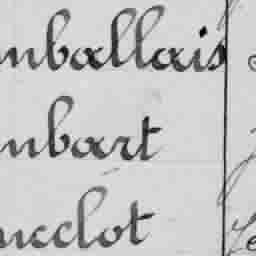 mballais
mbart
ucclot